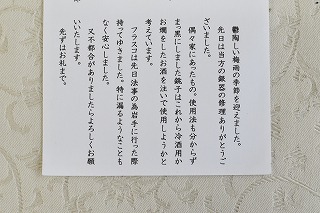 鬱陶しい梅雨の季節を迎えました。
先日は当方の銀器の修理ありがとうご
ざいました。
偶々家にあったもの。使用法も分からず
まっ黒にしました銚子はこれから冷酒用か
お燗をしたお酒を注いで使用しようかと
考えています。
フラスコは先日法事の為岩手に行った際
持ってゆきました。特に漏るようなことも
なく安心しました。
又不都合がありましたらよろしくお願
いいたします。
先ずはお礼まで。